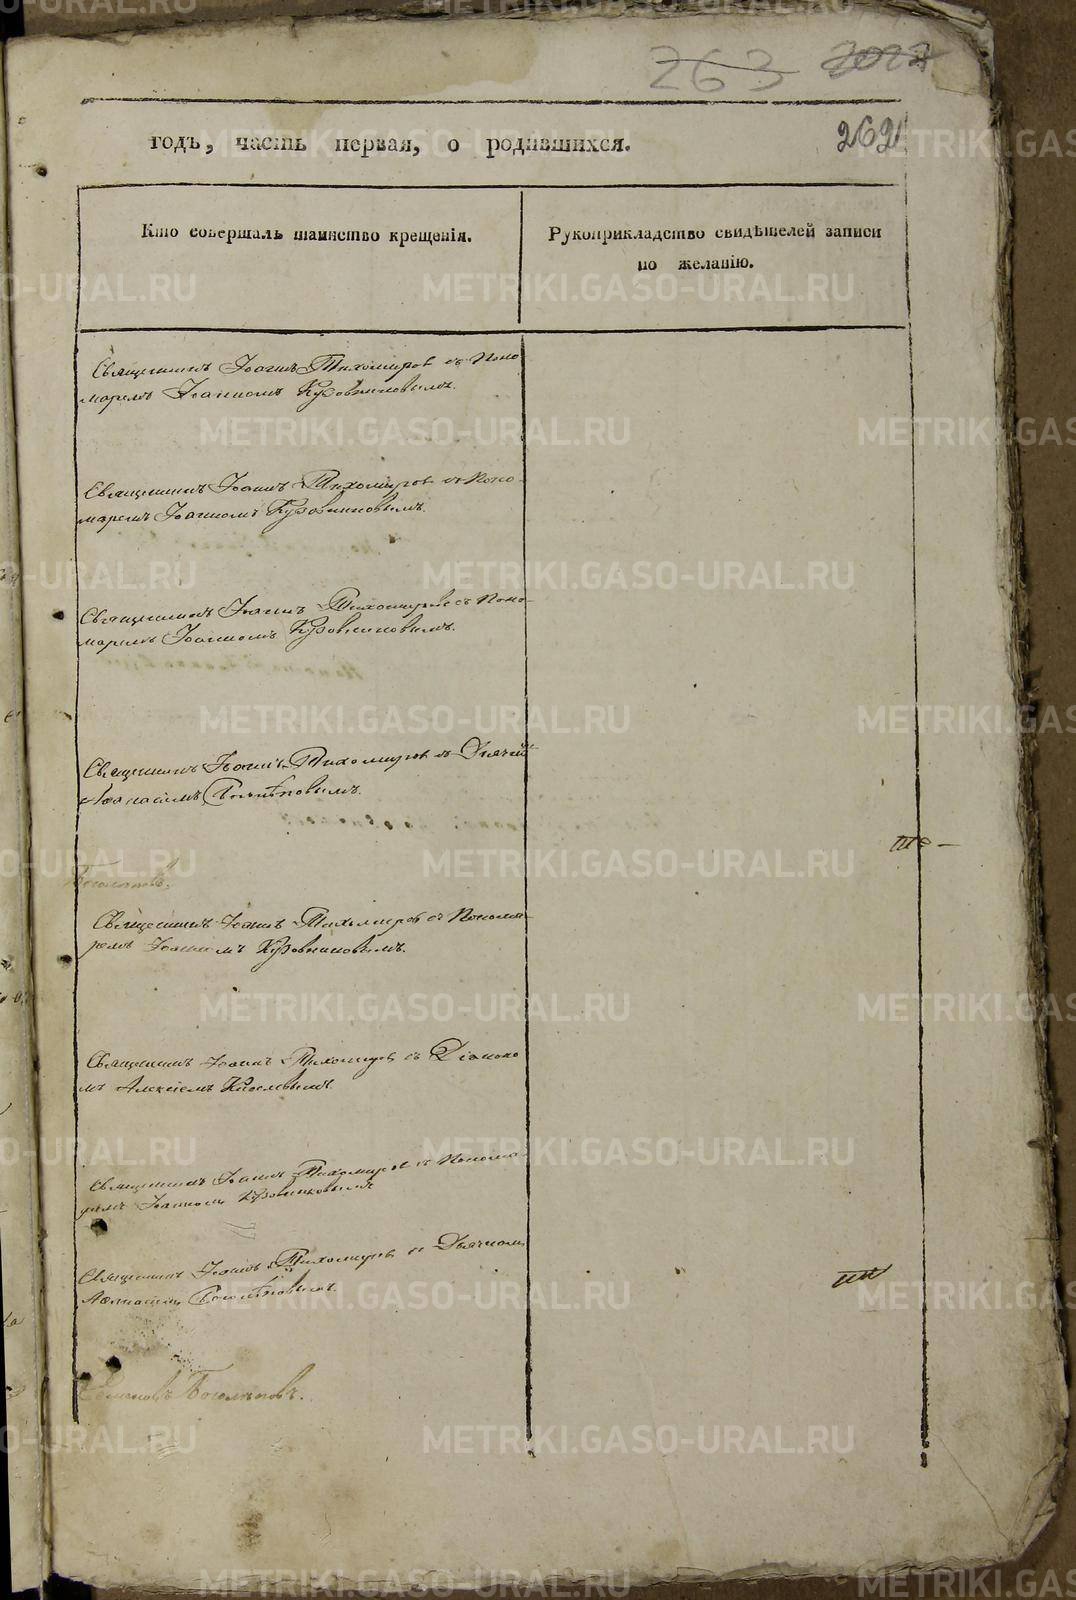 263 2022
262
годъ, часть первая, о родившихся.
Кто совершалъ таинство крещенія.
Рукоприкладство свидѣтелей записи
по желанію.
Священникъ Іоаннъ Тихомировъ съ Поно
маремъ Іоанномъ Кузовниковымъ.
Священникъ Іоаннъ Тихомировъ съ Поно-
маремъ Іоанномъ Кузовниковымъ.
Священникъ Іоаннъ Тихомировъ съ Поно-
маремъ Іоанномъ Кузовниковымъ.
Священникъ Іоаннъ Тихомировъ съ Дьячкомъ
Аѳанасіемъ Боголѣповымъ.
Боголѣповъ.
Священникъ Іоаннъ Тихомировъ съ Понома-
ремъ Іоанномъ Кузовниковымъ.
Священникъ Іоаннъ Тихомировъ съ Діаконо
мъ Алексіемъ Киселевымъ.
Священникъ Іоаннъ Тихомировъ съ Понома-
ремъ Іоанномъ Кузовниковымъ
Священникъ Іоаннъ Тихомировъ съ Дьячкомъ
Аѳанасіемъ Боголѣповымъ.
Боголѣповъ.
METRIKI.GASO-URAL.RU